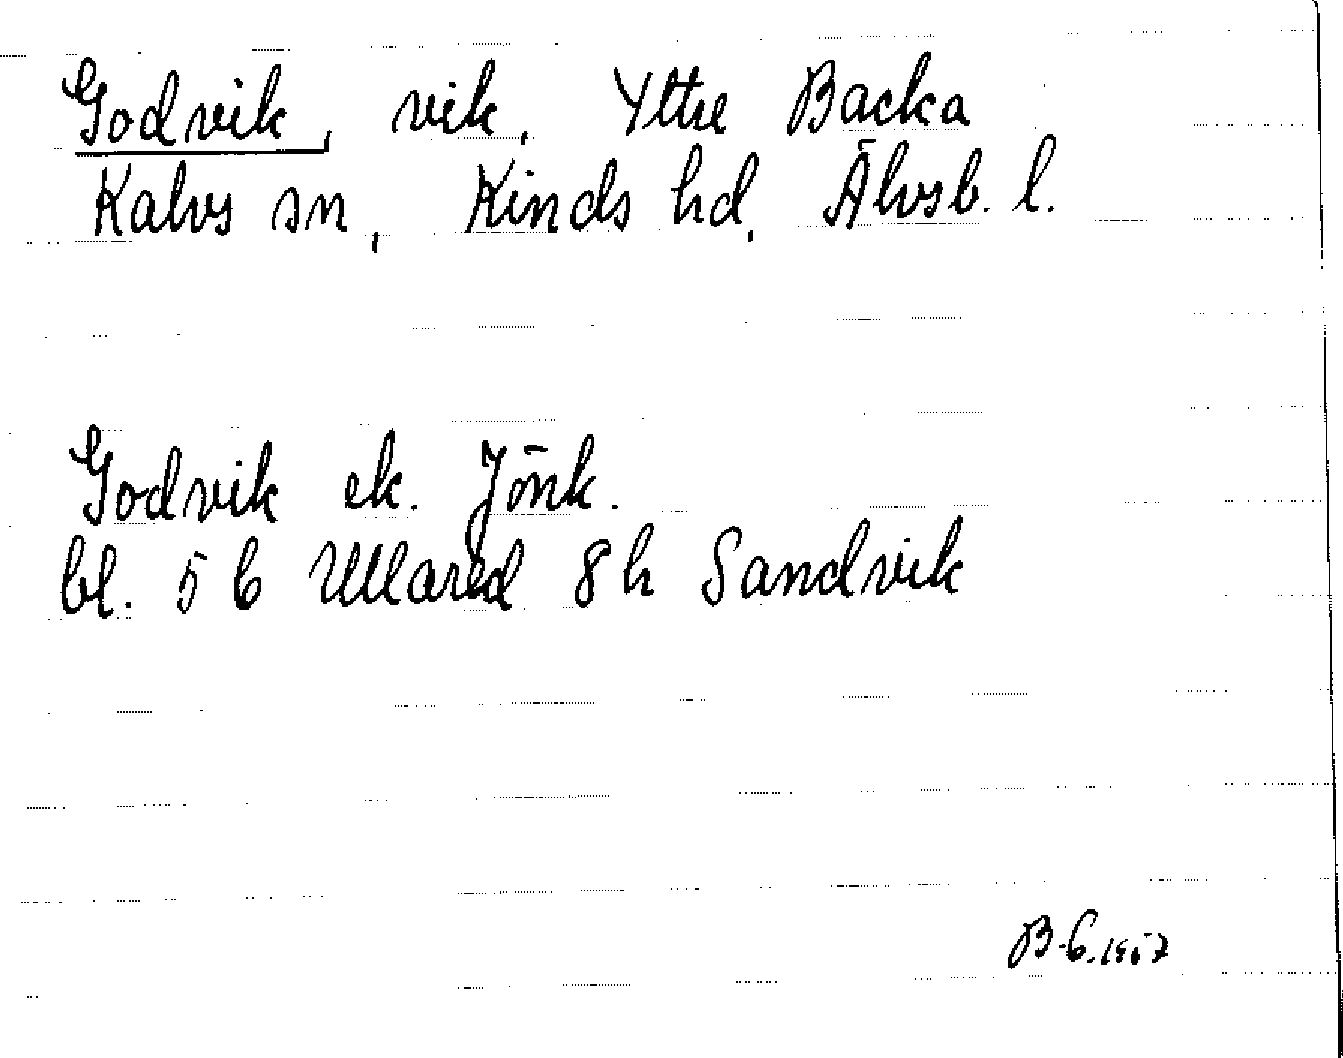 Godvik, vik, Yttre Backa
Kalvs sn, Kinds hd, Älvsb. l.
Godvik ek. Jönk.
bl. 5 b Ullared 8 h Sandvik
B-G. 1957